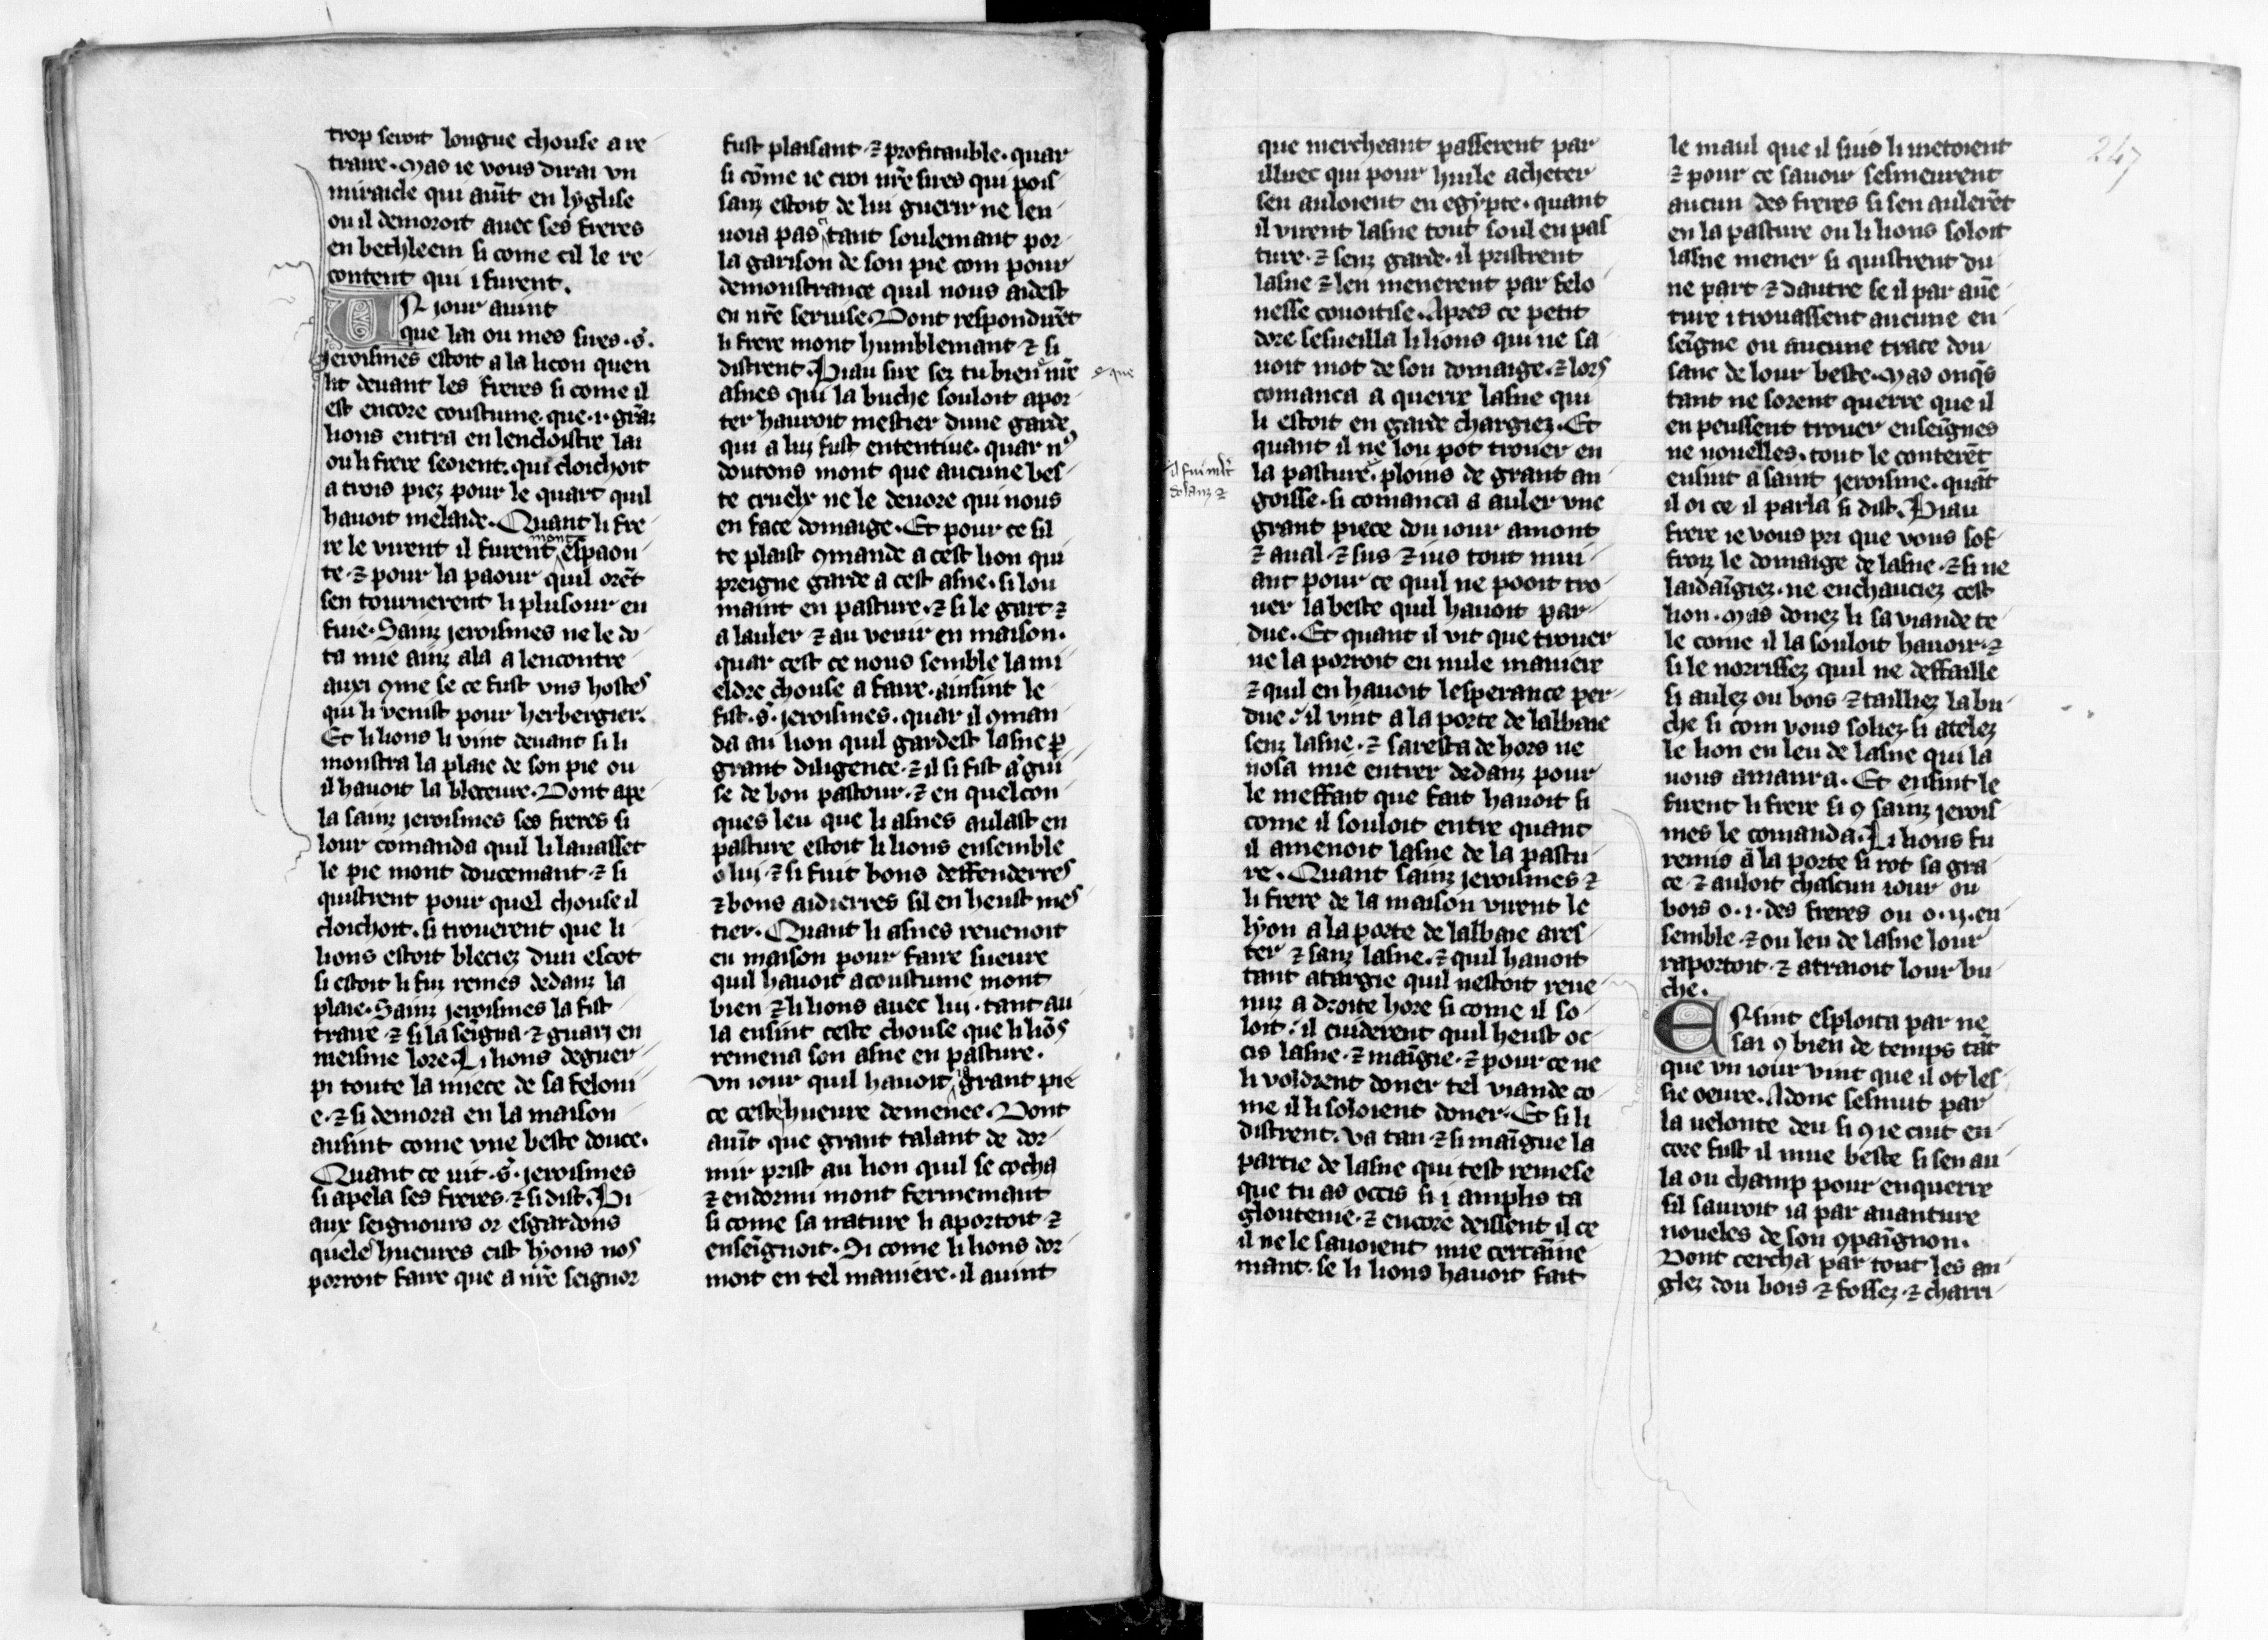 trop seroit longue chouse a re
traire. Mas ie vous dirai vn
miraicle qui auīt en lyglise
ou il demoroit auec ses freres
en bethleem si come cil le re
content qui i furent.
UN iour auint
que lai ou mes sires .s.
jeroismes estoit a la licon quen
lit deuant les freres si come il
est encore coustume. que .i. grāz
lions entra en lencloistre lai
ou li frere seoient. qui cloichoit
a trois piez pour le quart quil
hauoit melaide. Quant li fre
re le virent il furent mont espaon
te. ⁊ pour la paour quil orēt
sen tournerent li plusour en
fuie. Sainz jeroismes ne le do
ta mie ainz ala a lencontre
auxi ꝯme se ce fust vns hostes
qui li venist pour herbergier.
Et li lions li vint deuant si li
monstra la plaie de son pie ou
il hauoit la bleceure. Dont ape
la sainz jeroismes ses freres si
lour comanda quil li lauasset
le pie mont doucemant ⁊ si
quistrent pour quel chouse il
cloichoit. si trouerent que li
lions estoit bleciez dun escot
si estoit li fuz remes dedanz la
plaie. Sainz jeroismes la fist
traire ⁊ si la seigna ⁊ guari en
meisme lore. Li lions deguer
pi toute la niece de sa feloni
e. ⁊ si demora en la maison
ausint come vne beste douce.
Quant ce uit .s. jeroismes
si apela ses freres ⁊ si dist. Bi
aux seignours or esgardons
queles hueures cist lyons nos
porroit faire que a nr̄e seignor
fust plaisant ⁊ profitauble. quar
si cōme ie croi nr̄e sires qui pois
sanz estoit de lui guerir ne len
uoia pas tant soulemant por
la garison de son pie com pour
demonstrance quil nous aidest
en nr̄e seruise. Dont responduēt
li frere mont humblemant ⁊ si
distrent. Biau sire sez tu bien nr̄e
e que
asnes qui la buche souloit apor
ter hauroit mestier dune garde
qui a lui fust ententiue. quar n9
doutons mont que aucune bes
te cruelx ne le deuore qui nous
en face domaige. Et pour ce sil
te plaist ꝯmande a cest lion qui
preigne garde a cest asne. si lou
maint en pasture. ⁊ si le gart ⁊
a lauler ⁊ au venir en maison.
quar cest ce nous semble la mi
eldre chouse a faire. ainsint le
fist .s. jeroismes. quar il ꝯman
da au lion quil gardest lasne ꝑ
grant diligence. ⁊ il si fist a gui
se de bon pastour. ⁊ en quelcon
ques leu que li asnes aulast en
pasture estoit li lions ensemble
o lui ⁊ si fuit bons deffenderres
⁊ bons aidierres sil en heust mes
tier. Quant li asnes reuenoit
en maison pour faire lueure
quil hauoit acoustume mont
bien ⁊ li lions auec lui. tant au
la ensint ceste chouse que li liōs
remena son asne en pasture.
vn iour quil hauoit ia grant pie
ce ceste hueure demenee. Dont
auīt que grant talant de dor
mir prist au lion quil se cocha
⁊ endormi mont fermemant
si come sa nature li aportoit ⁊
enseīgnoit. Si come li lions dor
moit en tel maniere. il auint
que mercheant passerent par
illuec qui pour huile acheter
sen auloient en egypte. quant
il virent lasne tout soul en pas
ture. ⁊ senz garde. il pristrent
lasne ⁊ len menerent par felo
nesse couoitise. Apres ce petit
dore sesueilla li lions qui ne sa
uoit mot de son domaige. ⁊ lors
comanca a querre lasne qui
li estoit en garde chargiez. Et
quant il ne lou pot trouer en
la pasture. ploins de grant an
il fui mlt
dolanz ⁊
goisse. si comanca a auler vne
grant piece dou iour amont
⁊ aual. ⁊ sus ⁊ ius tout mui
ant pour ce quil ne pooit tro
uer la beste quil hauoit par
due. Et quant il vit que trouer
ne la porroit en nule maniere
⁊ quil en hauoit lesperance per
due. il vint a la porte de labaie
senz lasne. ⁊ saresta de hors ne
nosa mie entrer dedanz pour
le meffait que fait hauoit si
come il souloit entre quant
il amenoit lasne de la pastu
re. Quant sainz jeroismes ⁊
li frere de la maison virent le
lyon a la porte de labaie ares
ter ⁊ sanz lasne. ⁊ quil hauoit
tant atargie quil nestoit reue
nuz a droite hore si come il so
loit. il cuiderent quil heust oc
cis lasne. ⁊ maīgie. ⁊ pour ce ne
li voldrent doner tel viande co
me il li soloient doner. Et si li
distrent. va tan ⁊ si maīgue la
partie de lasne qui test remese
que tu as occis si i amplis ta
gloutenie. ⁊ encore deissent il ce
il ne le sauoient mie certaīne
mant. se li lions hauoit fait
247
le maul que il suis li metoient
⁊ pour ce sauoir sesmeurent
aucun des freres si sen aulerēt
en la pasture ou li lions soloit
lasne mener si quistrent du
ne part ⁊ dautre se il par auē
ture i trouassent aucune en
seīgne ou aucune trace dou
sanc de lour beste. Mas onqs
tant ne sorent querre que il
en peussent trouer enseīgnes
ne nouelles. tout le conterēt
ensint a saint jeroisme. quāt
il oi ce il parla si dist. Biau
frere ie vous pri que vous sof
froiz le domaige de lasne. ⁊ si ne
laidaīgiez. ne enchauciez cest
lion. Mas donez li sa viande te
le come il la souloit hauoir. ⁊
si le norrissez quil ne deffaille
si aulez ou bois ⁊ tailliez la bu
che si com vous soliez. si atelez
le lion en leu de lasne qui la
uous amanra. Et ensint le
firent li frere si ꝯ sainz jerois
mes le comanda. Li lions fu
remis a la porte si rot sa gra
ce ⁊ auloit chascun iour ou
bois o .i. des freres ou o .ii. en
semble. ⁊ ou leu de lasne lour
raportoit ⁊ atraioit lour bu
che.
ENsint esploita par ne
sai ꝯ bien de temps tāt
que vn iour vint que il ot les
sie oeure. Adonc sesmut par
la uelonte deu si ꝯ ie cuit en
core fust il mue beste si sen au
la ou champ pour enquerre
sil sauroit ia par auanture
noueles de son ꝯpaīgnon.
Dont cercha par tout les an
glez dou bois ⁊ fossez. ⁊ charri